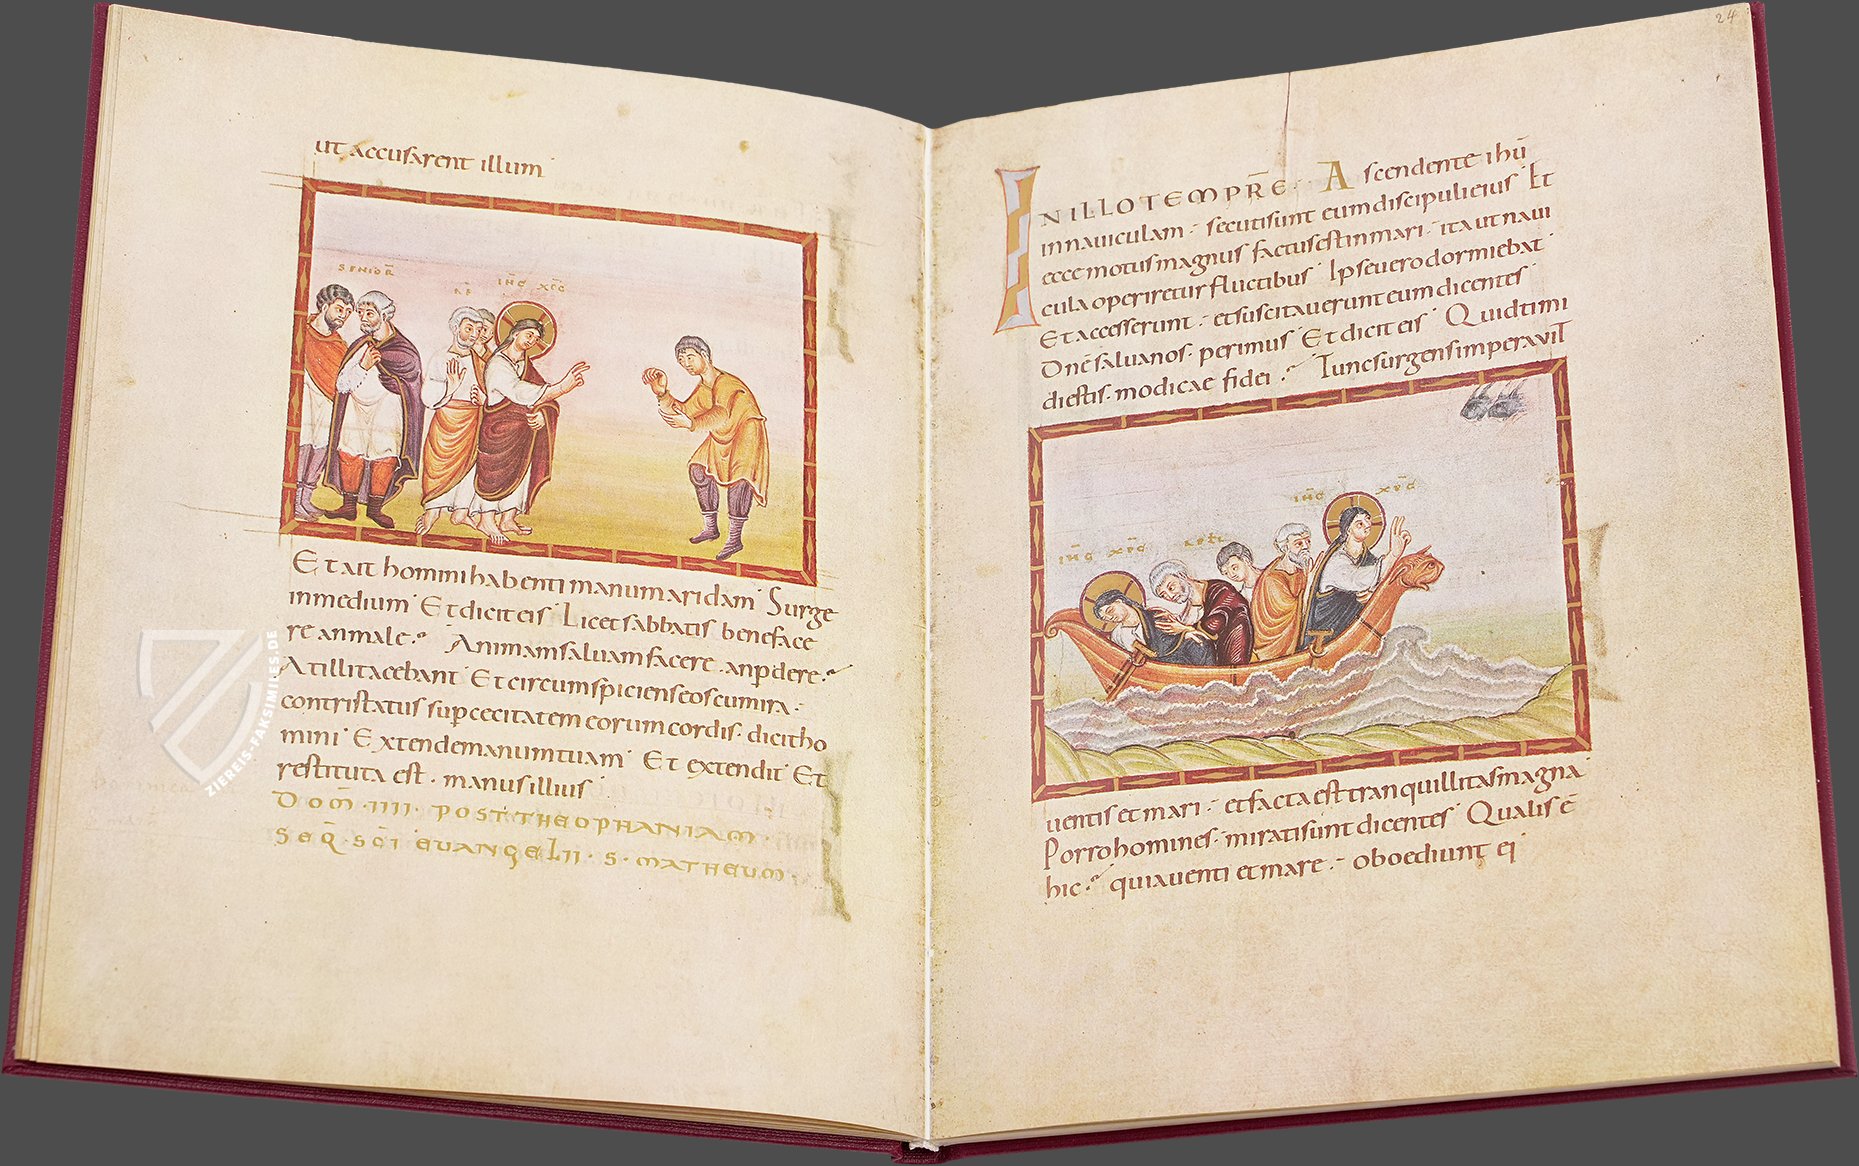 ut accusarent illum
SENIOR̄
AP̄
IH̄C XP̄C
Et ait homini habenti manum aridam Surge
in medium Et dicit eis Licet sabbatis beneface
re an male. Animam saluam facere. an pdere.
At illi tacebant Et circumspiciens eos cum ira.
contristatus sup cecitatem eorum cordis. dicit ho
mini Extende manum tuam Et extendit Et
restituta est. manus illius
DOM̄. IIII. POST THEOPHANIAM.
SEQ̄. SC̄I EVANGELII. S. MATHEUM.
ZIEREIS-FAKSIMILES.DE
24
IN ILLO TEMPR̄E. Ascendente ihū
in nauiculam. secuti sunt eum discipuli eius Et
ecce motus magnus factus est in mari. ita ut naui
cula operiretur fluctibus Ipse uero dormiebat
Et accesserunt. et suscitauerunt eum dicentes
Dnē salua nos. perimus Et dicit eis Quid timi
di estis. modicae fidei. Tunc surgens imperauit
IH̄C XP̄C
IH̄C XP̄C
uentis et mari. et facta est tranquillitas magna
Porro homines. mirati sunt dicentes Qualis ē
hic. quia uenti et mare. oboediunt ei